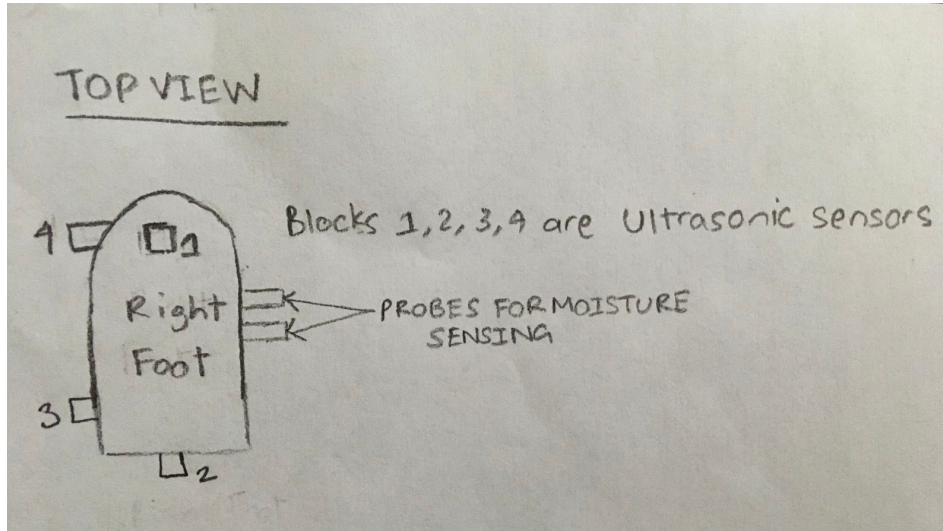 TOP VIEW
4
1
Blocks 1,2,3,4 are Ultrasonic sensors
Right
Foot
PROBES FOR MOISTURE
SENSING
3
2